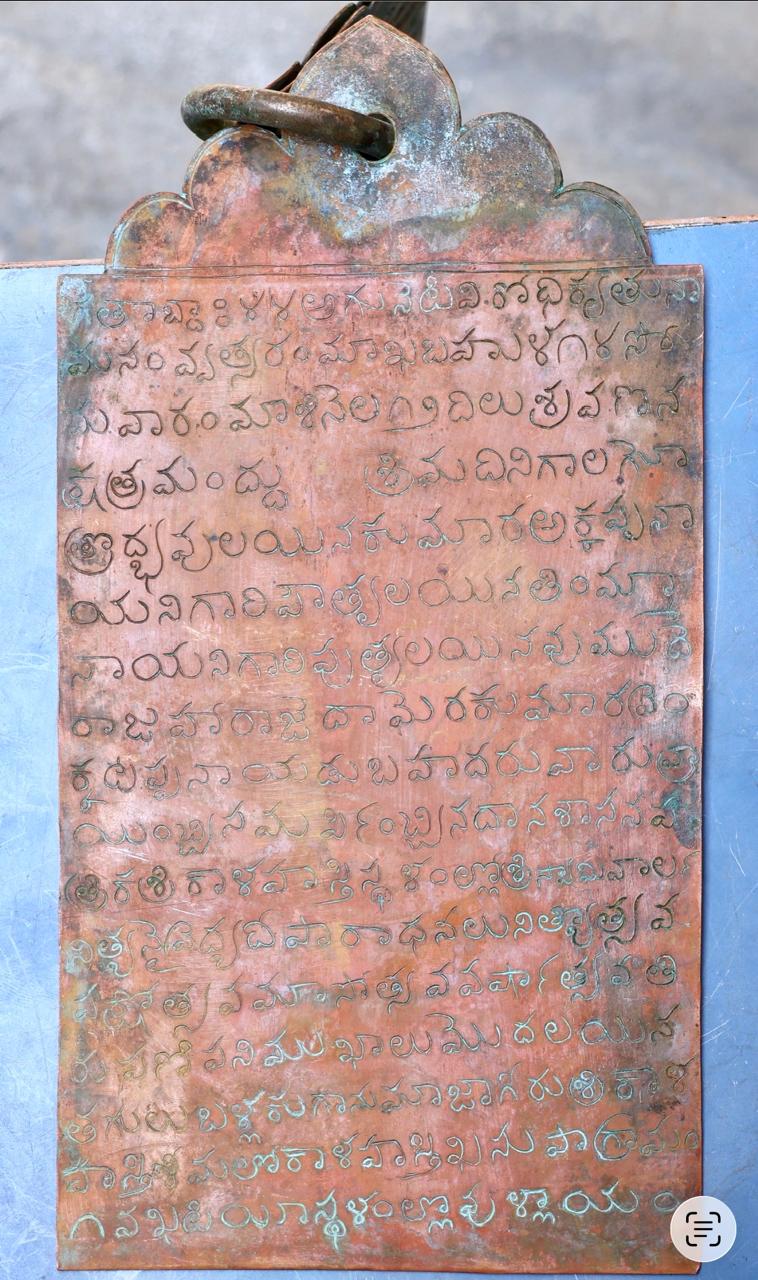 శతాబ్దాః ళళ అగు నేటి విరోధికృతు నా
మ సం వ్వత్సరం మాఖ బహుళ ౧౪ సోమ
వారం మాశినెల ౧౨ దిలు శ్రవణ న
క్షత్రమందు శ్రీమ దినిగాల గో
త్రొద్భవులయిన కుమార అక్కప్ప నా
యనిగారి పౌత్రులయిన తింమా
నాయనిగారి పుత్రులయిన
రాజమహారాజ దామెర కుమార వెం
కటప్ప నాయడు బహదరు వారు వ్రా
యించ్చి సమర్పించ్చిన దానశాసనప
త్రిక శ్రీ కాళహాస్తి స్థళంల్లో శ్రీ స్వామివార్ల
నిత్య నైవేద్య దీపారాధనలు నిత్యోత్సవ
పక్షోత్సవ మాసోత్సవ వర్షోత్సవ తి
పని ముఖాలు మొదలయిన
తగులుబళ్లకుగాను మా జాగీరు శ్రీ కాళ
హాస్తి కాళహాస్తి ఖసుపా గ్రామం
౧ వఖటి యీ స్థళంల్లో వుళ్లాయం